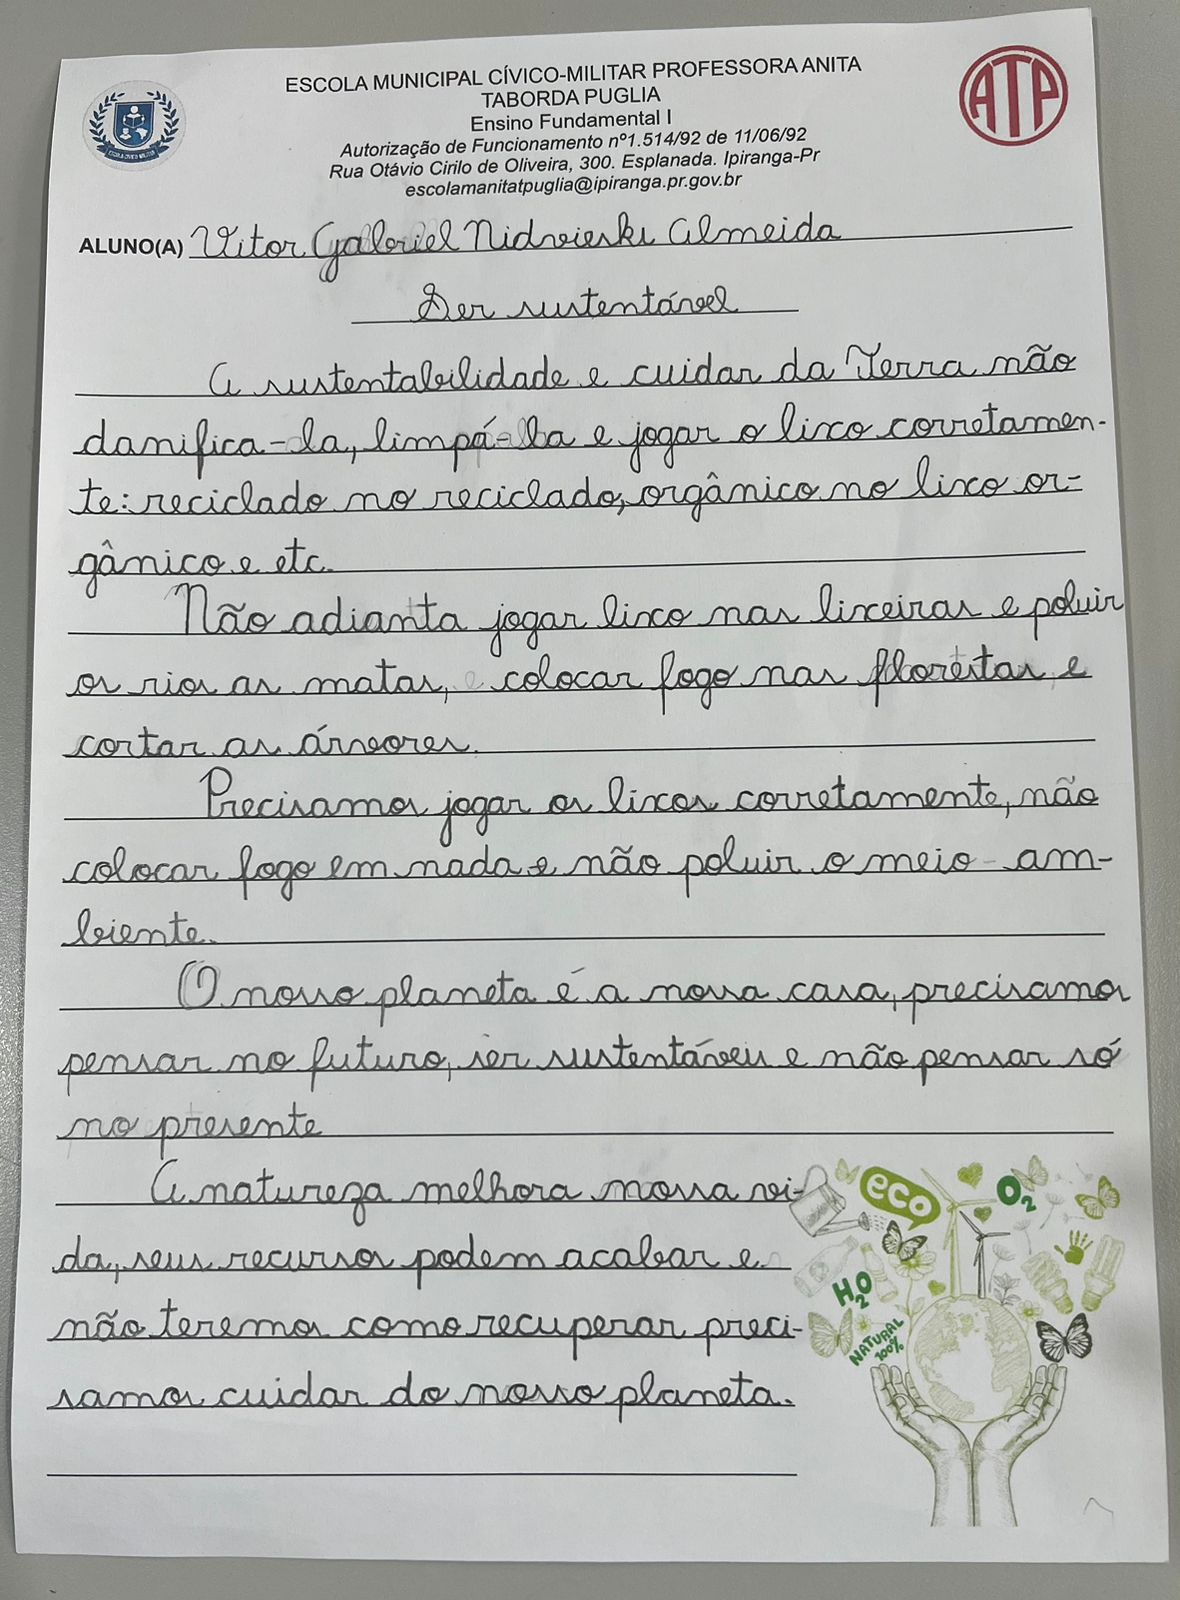 ESCOLA MUNICIPAL CÍVICO-MILITAR PROFESSORA ANITA
TABORDA PUGLIA
Ensino Fundamental I
Autorização de Funcionamento nº1.514/92 de 11/06/92
Rua Otávio Cirilo de Oliveira, 300. Esplanada. Ipiranga-Pr
escolamanitatpuglia@ipiranga.pr.gov.br
ATP
ESCOLA CÍVICO MILITAR
ALUNO(A) Vitor Gabriel Nidvieski Almeida
Ser sustentável
A sustentabilidade e cuidar da Terra não
danifica-la, limpá-la e jogar o lixo corretamen-
te: reciclado no reciclado, orgânico no lixo or-
gânico e etc.
Não adianta jogar lixo nas lixeiras e poluir
os rios as matas, colocar fogo nas florestas, e
cortar as árvores.
Precisamos jogar os lixos corretamente, não
colocar fogo em nada e não poluir o meio-am-
biente.
O nosso planeta é a nossa casa, precisamos
pensar no futuro, ser sustentáveis e não pensar só
no presente
A natureza melhora nossa vi-
da, seus recursos podem acabar e
não teremos como recuperar preci-
samos cuidar do nosso planeta.
eco
O2
H2O
NATURAL
100%